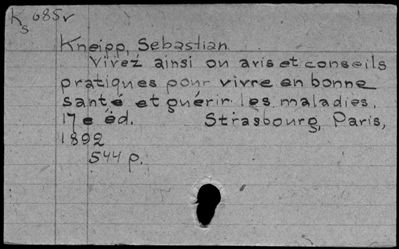 K 685v
s
Kneipp, Sebastian
Vivez ainsi ou avis et conseils
pratiques pour vivre en bonne
santé et guérir les maladies.
17e éd. Strasbourg, Paris,
1892
544 p.